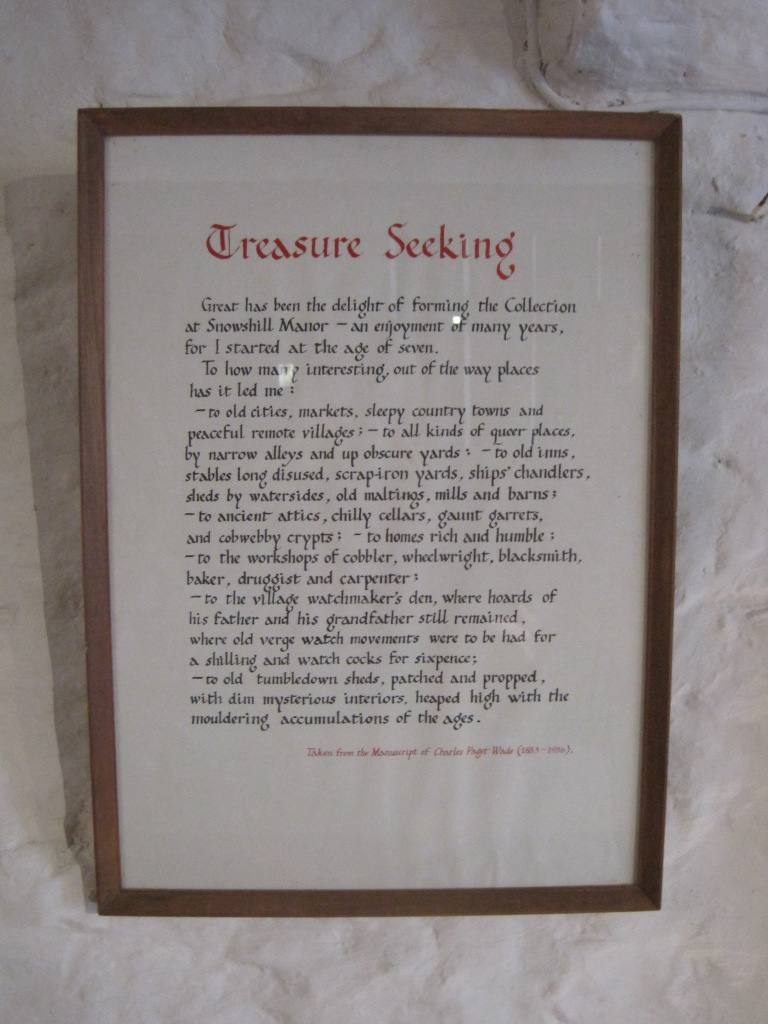 Treasure Seeking
Great has been the delight of forming the Collection
at Snowshill Manor – an enjoyment of many years,
for I started at the age of seven.
To how many interesting, out of the way places
has it led me :
– to old cities, markets, sleepy country towns and
peaceful remote villages ; – to all kinds of queer places,
by narrow alleys and up obscure yards ; – to old inns,
stables long disused, scrap-iron yards, ships' chandlers,
sheds by watersides, old maltings, mills and barns ;
– to ancient attics, chilly cellars, gaunt garrets,
and cobwebby crypts ; – to homes rich and humble ;
– to the workshops of cobbler, wheelwright, blacksmith,
baker, druggist and carpenter ;
– to the village watchmaker's den, where hoards of
his father and his grandfather still remained,
where old verge watch movements were to be had for
a shilling and watch cocks for sixpence ;
– to old tumbledown sheds, patched and propped,
with dim mysterious interiors, heaped high with the
mouldering accumulations of the ages.
Taken from the Manuscript of Charles Paget Wade (1883–1956).